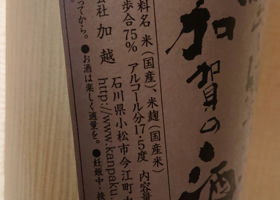 加賀の酒
料名 米(国産)、米麹(国産米)
歩合75% アルコール分17.5度 内容量
会社 加越 石川県小松市今江町
http://www.kanpaku
ってから。●お酒は楽しく適量を。●妊娠中・授